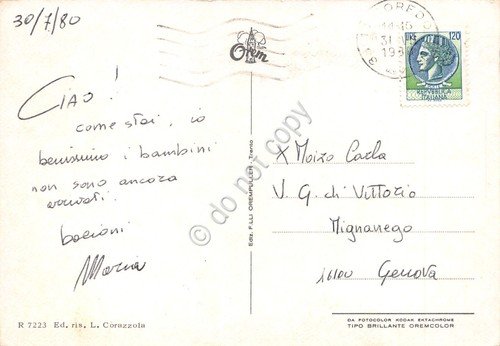 30/7/80
CIAO!
come stai, io
benissimo i bambini
non sono ancora
arrivati.
bacioni
Orem
14-15
31
198
LIRE 120
REPUBBLICA
ITALIANA
X Moizo Carla
V. G. di Vittorio
Mignanego
16100 Genova
Ediz. F.LLI OREMPULLER - Trento
do not copy
R 7223 Ed. ris. L. Corazzola
DA FOTOCOLOR KODAK EKTACHROME
TIPO BRILLANTE OREMCOLOR